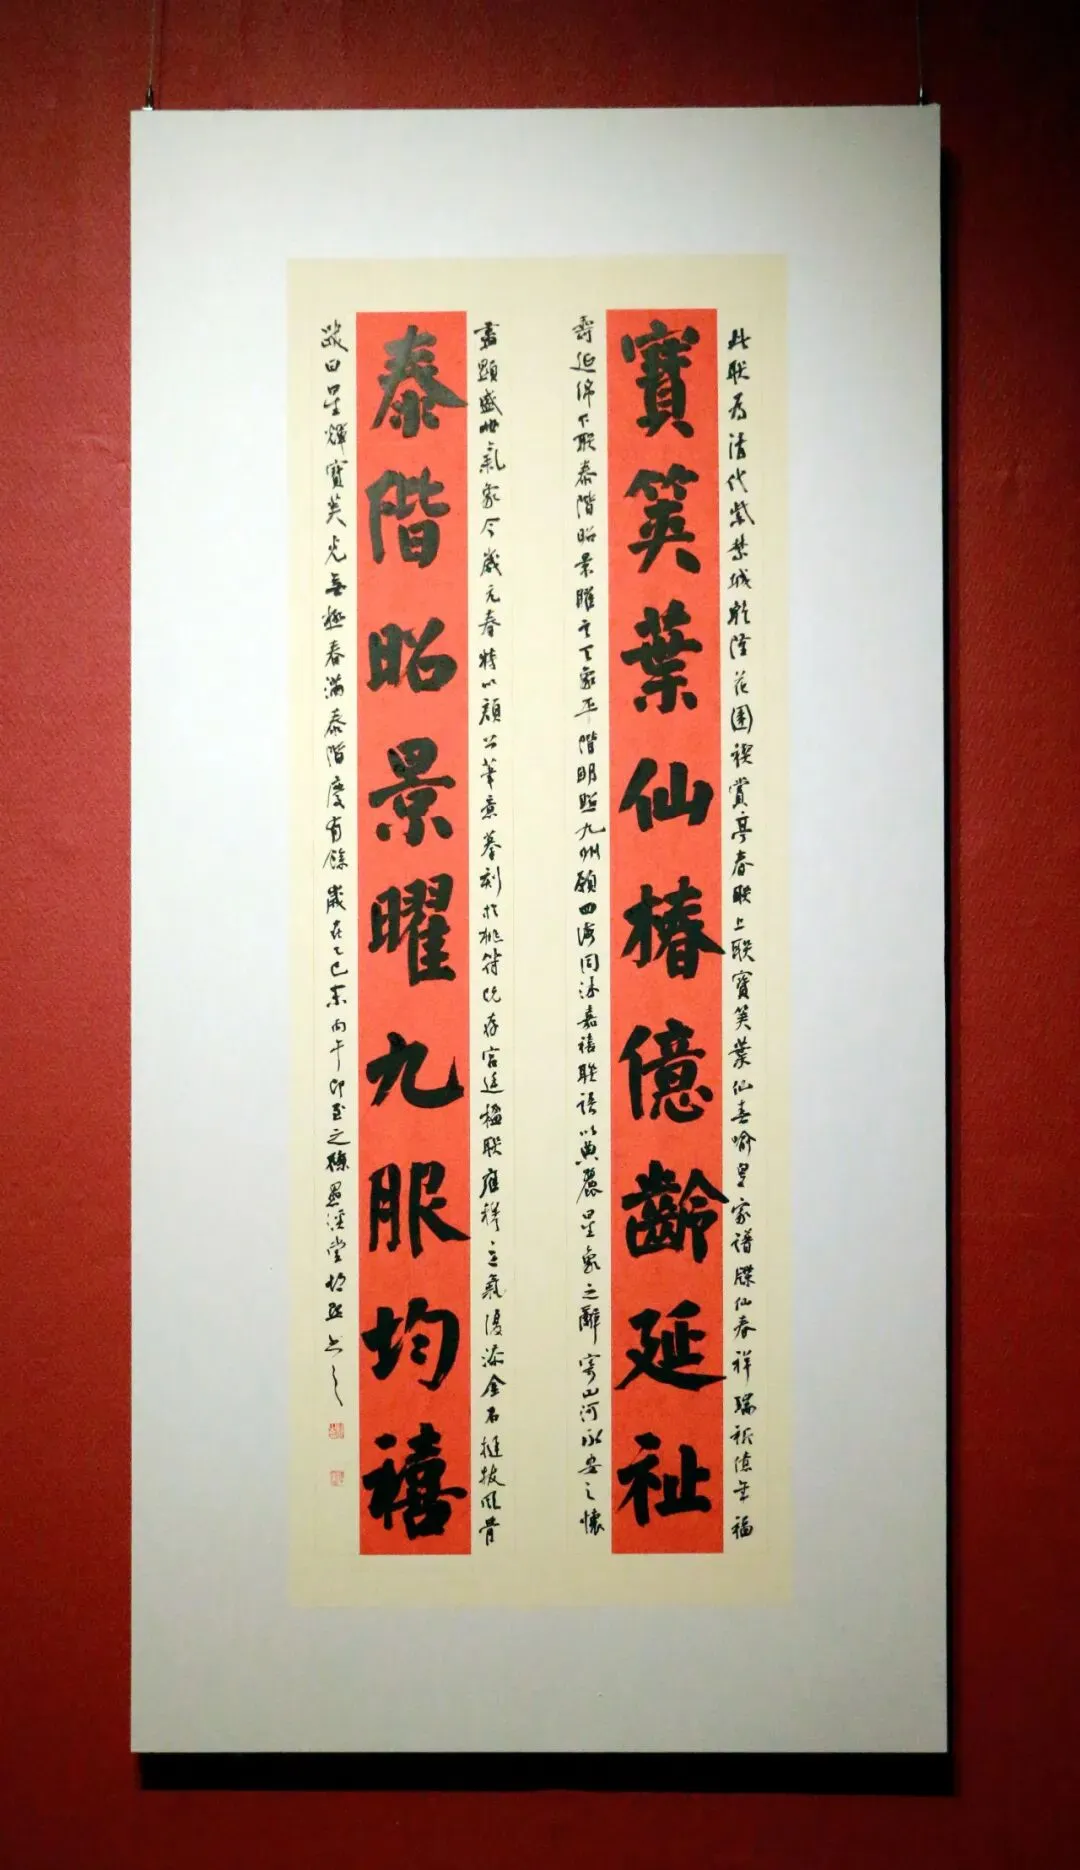 此联为清代紫禁城乾隆花园禊赏亭春联上联宝筴葉仙喜喻皇家谱牒仙春祥瑞祈億年福
寶筴葉仙椿億齡延祉
壽延绵下联泰階昭景曜言天象平階明照九州願四海同沐嘉禧联语以典麗星象之辭寄山河永安之懷
盡顯盛世氣象今歲元春特以顔公筆意摹刻於桃符既存宫廷楹联雍穆之氣復添金石挺拔風骨
泰階昭景曜九服均禧
跋曰星輝寶筴光無極春满泰階慶有餘歲在乙巳末丙午即至之際墨溪堂 书之